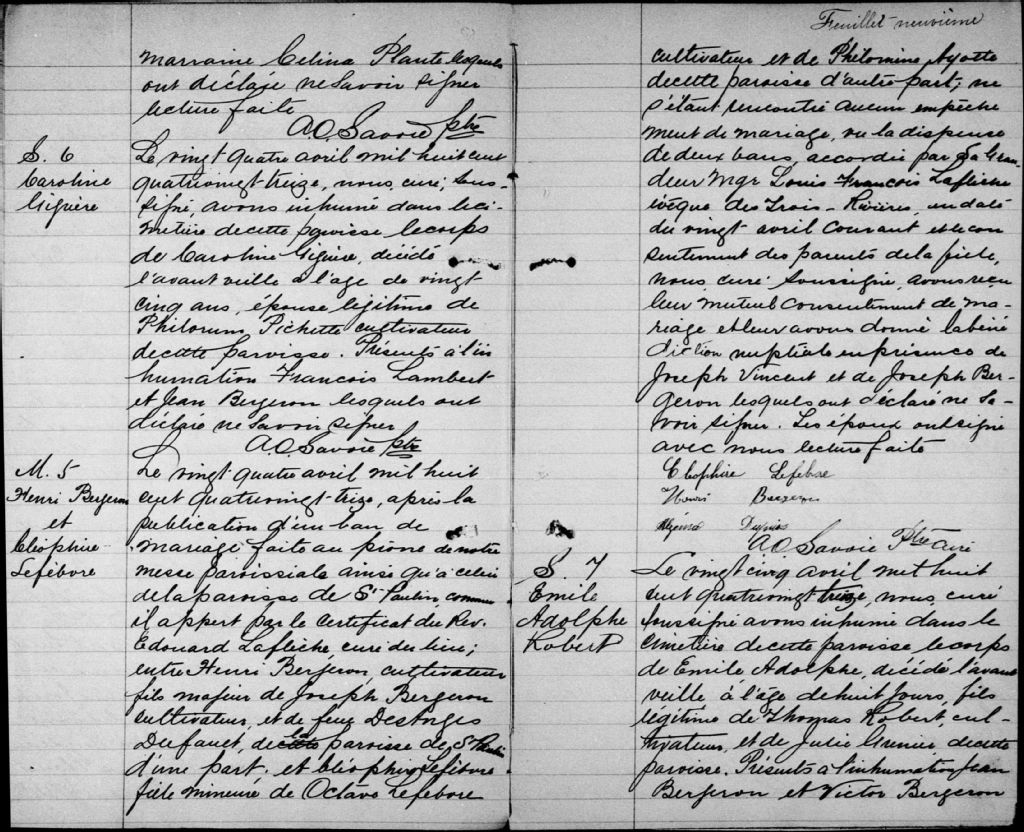 marraine Celina Plante lesquels
ont déclaré ne savoir signer
lecture faite
A.O. Savoie ptre
S. 6
Caroline
Giguère
Le vingt quatre avril mil huit cent
quatrevingt treize, nous, curé, sous-
signé, avons inhumé dans le ci-
metière de cette paroisse le corps
de Caroline Giguère, décédé
l'avant veille à l'age de vingt
cinq ans, épouse légitime de
Philorum Pichette cultivateur
de cette paroisse. Présents à l'in
humation François Lambert
et Jean Bergeron lesquels ont
déclaré ne savoir signer
A.O. Savoie ptre
M. 5
Henri Bergeron
et
Cléophire
Lefebvre
Le vingt quatre avril mil huit
cent quatrevingt-treize, après la
publication d'un ban de
mariage faite au prône de notre
messe paroissiale ainsi qu'à celui
de la paroisse de St Paulin, comme
il appert par le certificat du Rév.
Edouard Laflèche, curé du lieu;
entre Henri Bergeron, cultivateur
fils majeur de Joseph Bergeron
cultivateur, et de feue Desanges
de la paroisse de St Paulin
d'une part. et Cléophire Lefebvre
fille mineure de Octave Lefebvre
Feuillet neuvième
cultivateur et de Philomine Ayotte
de cette paroisse d'autre part; ne
s'étant rencontré aucun empêche
ment de mariage, vu la dispense
de deux bans, accordée par Sa Gran
deur Mgr Louis François Laflèche
évêque des Trois-Rivières, en date
du vingt avril courant et le con
sentement des parents de la fille,
nous, curé soussigné, avons reçu
leur mutuel consentement de ma-
riage et leur avons donné la béné
diction nuptiale en présence de
Joseph Vincent et de Joseph Ber-
geron lesquels ont déclaré ne sa-
voir signer. Les époux ont signé
avec nous lecture faite
Cléophire Lefebvre
Henri Bergeron
A.O. Savoie Ptre curé
S. 7
Emile
Adolphe
Robert
Le vingt cinq avril mil huit
cent quatrevingt treize, nous, curé
soussigné avons inhumé dans le
cimetière de cette paroisse le corps
de Emile Adolphe, décédé l'avant
veille à l'age de huit jours, fils
légitime de Thomas Robert, cul-
tivateur, et de Julie Grenier, de cette
paroisse. Présents à l'inhumation Jean
Bergeron et Victor Bergeron